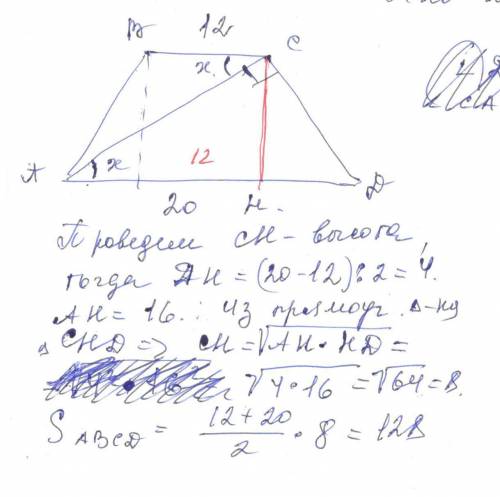 12
B
C
x
x
12
A
20
H
D
Проведем CH - высота,
тогда DH = (20-12):2 = 4.
AH = 16. Из прямоуг. Δ-ка
CHD => CH = √AH·HD =
√4·16 = √64 = 8.
S ABCD = 12+20/2 · 8 = 128